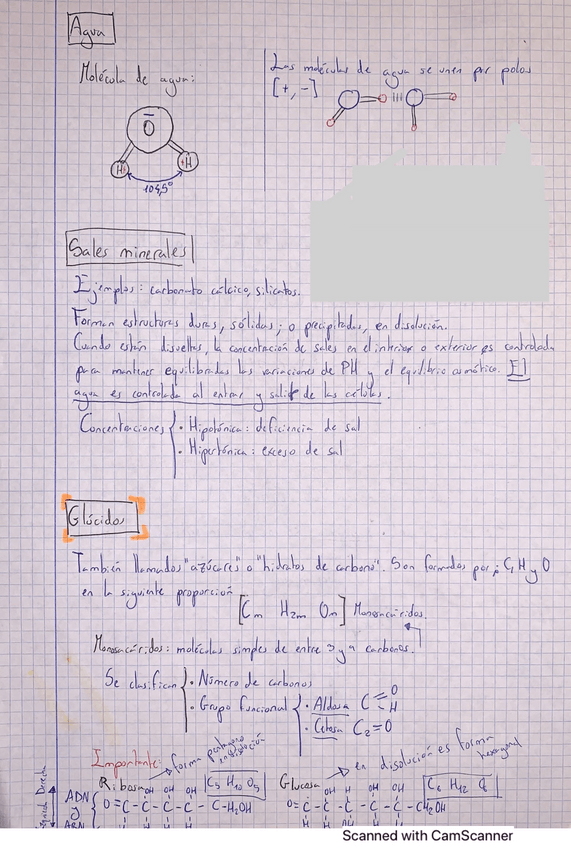 Agua
Molécula de agua:
Las moléculas de agua se unen por polos
[+, -]
O
H
H
104,5°
Sales minerales
Ejemplos: carbonato cálcico, silicatos.
Forman estructuras duras, sólidas; o precipitadas, en disolución.
Cuando están disueltas, la concentración de sales en el interior o exterior es controlada
para mantener equilibradas las variaciones de PH y el equilibrio osmótico. El
agua es controlada al entrar y salir de las células.
Concentraciones
· Hipotónica: deficiencia de sal
· Hipertónica: exceso de sal
Glúcidos
También llamados "azúcares" o "hidratos de carbono". Son formados por: C, H y O
en la siguiente proporción
[Cn H2n On] Monosacáridos.
Monosacáridos: moléculas simples de entre 3 y 9 carbonos.
Se clasifican
· Número de carbonos
· Grupo funcional
· Aldosa C =O -H
· Cetosa C2=O
Importante:
forma pentagono en disolución
en disolución es forma hexagonal
Ribosa
C5 H10 O5
Glucosa
C6 H12 O6
ADN
y
ARN
OH OH OH
O=C-C-C-C-C-H2OH
H H H H
OH H OH OH
O=C-C-C-C-C-CH2OH
H H OH H H
Scanned with CamScanner